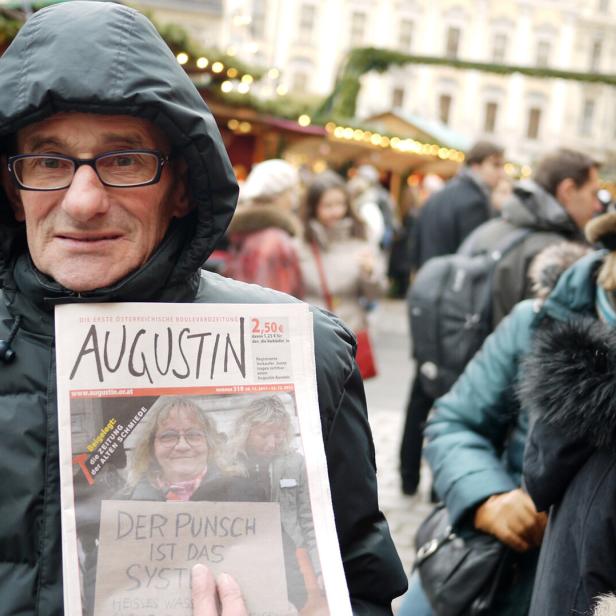 DIE ERSTE ÖSTERREICHISCHE BOULEVARDZEITUNG
AUGUSTIN
2,50€
davon 1,25 € für
den, die Verkäufer_in
Registrierte
www.augustin.or.at
NUMMER 310
Beigelegt:
die ZEITUNG
der ALTEN SCHMIEDE
DER PUNSCH
IST DAS
SYST
HEISSES